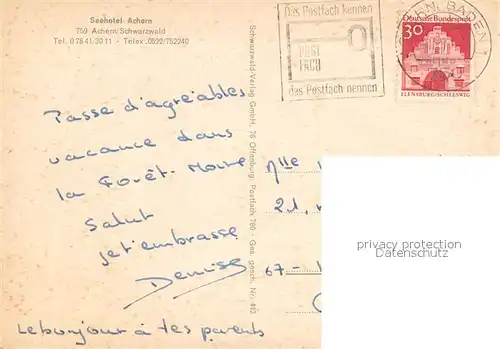 Seehotel Achern
759 Achern/Schwarzwald
Tel. 0 78 41/30 11 - Telex: 0522/752240
Passe d'agréables
vacance dans
la Forêt-Noire
Salut
je t'embrasse
Denise
Le bonjour à tes parents
Schwarzwald-Verlag GmbH, 76 Offenburg, Postfach 760 - Ges. gesch. Nr. 443
Das Postfach kennen
POST
FACH
das Postfach nennen
BADEN 1
Deutsche Bundespost
30
FLENSBURG/SCHLESWIG
Mlle
21, r
67-
privacy protection
Datenschutz